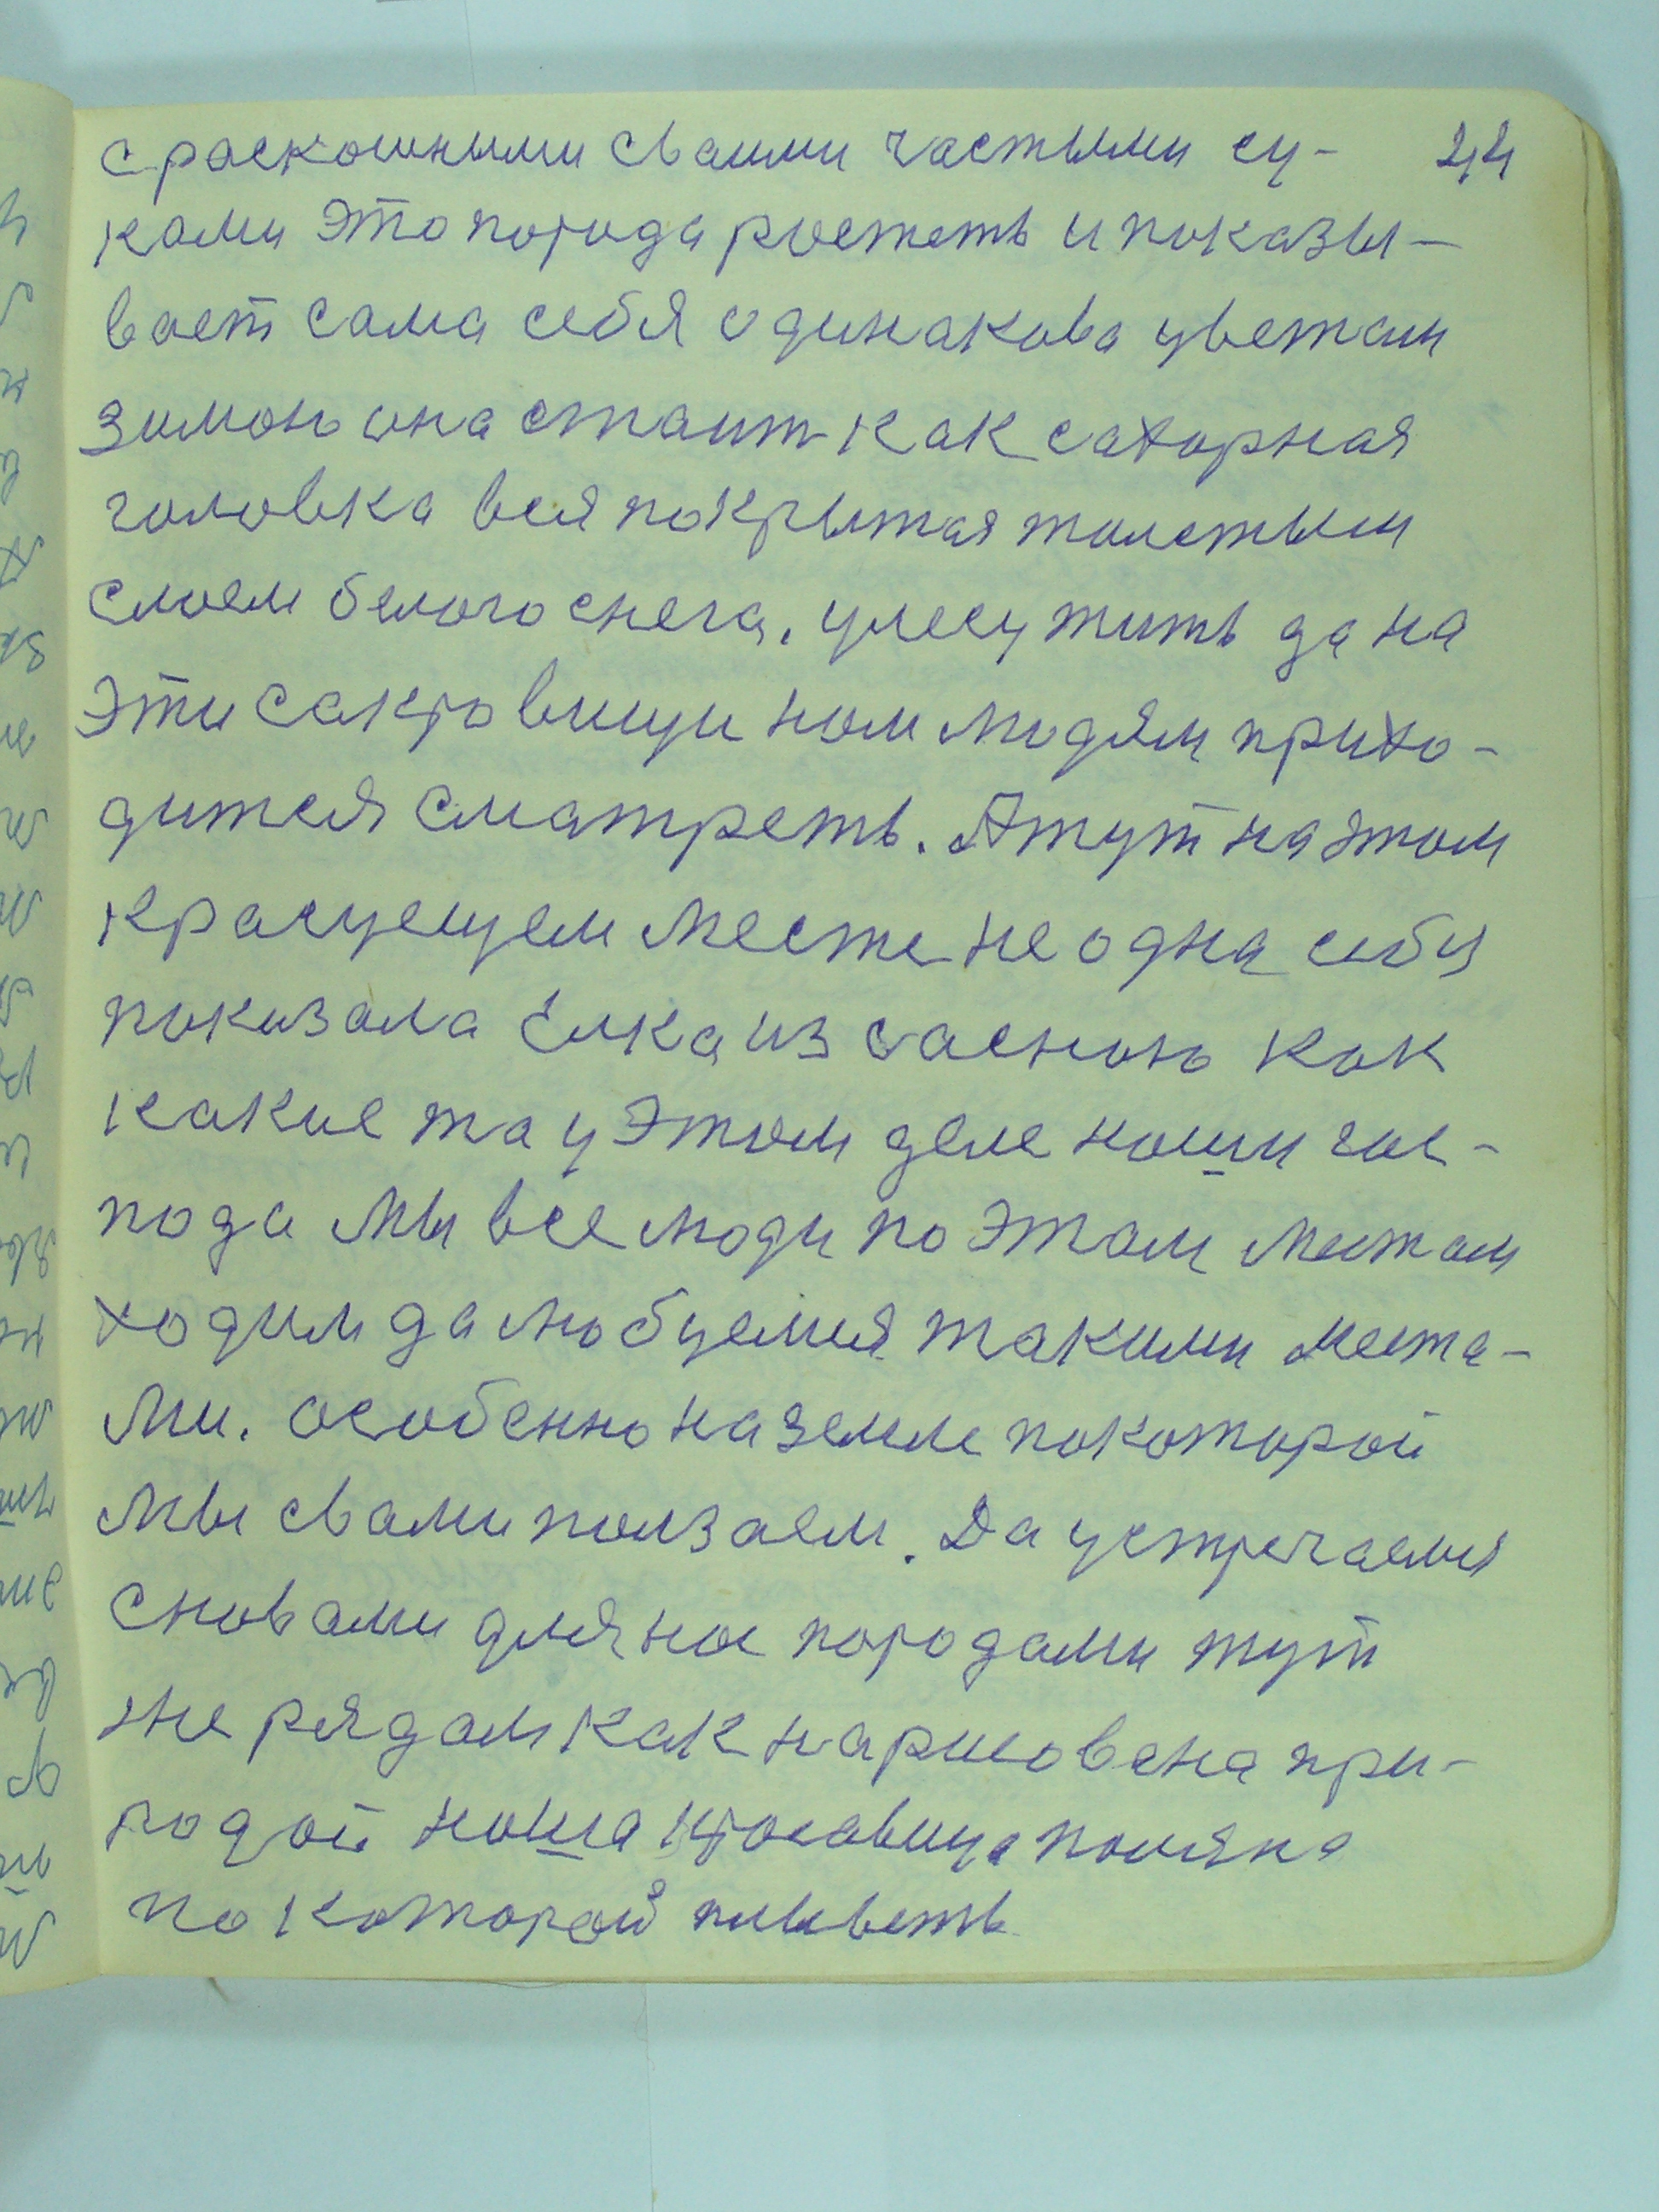 с раскошными сваими частыми су- 44
ками это порода ростеть и показы-
вает сама себя одинакова цветам
зимою она стаит как сахорная
головка вся покрытая толстым
слоем белого снега. улесу жить да на
эти сакровищи ном людям прихо-
дится сматреть. А тут на этом
красующем месте не одна себя
показала ёлка из сасною как
какие та у этом деле наши гос-
пода мы все люди по этам местам
ходим да любуемся такими места-
ми. особенно на земле по которой
мы свами ползаем. Да устречаемся
сновами для нас породами тут
же рядам как нарисована при-
родой наша красавица поляна
по которой плывёть